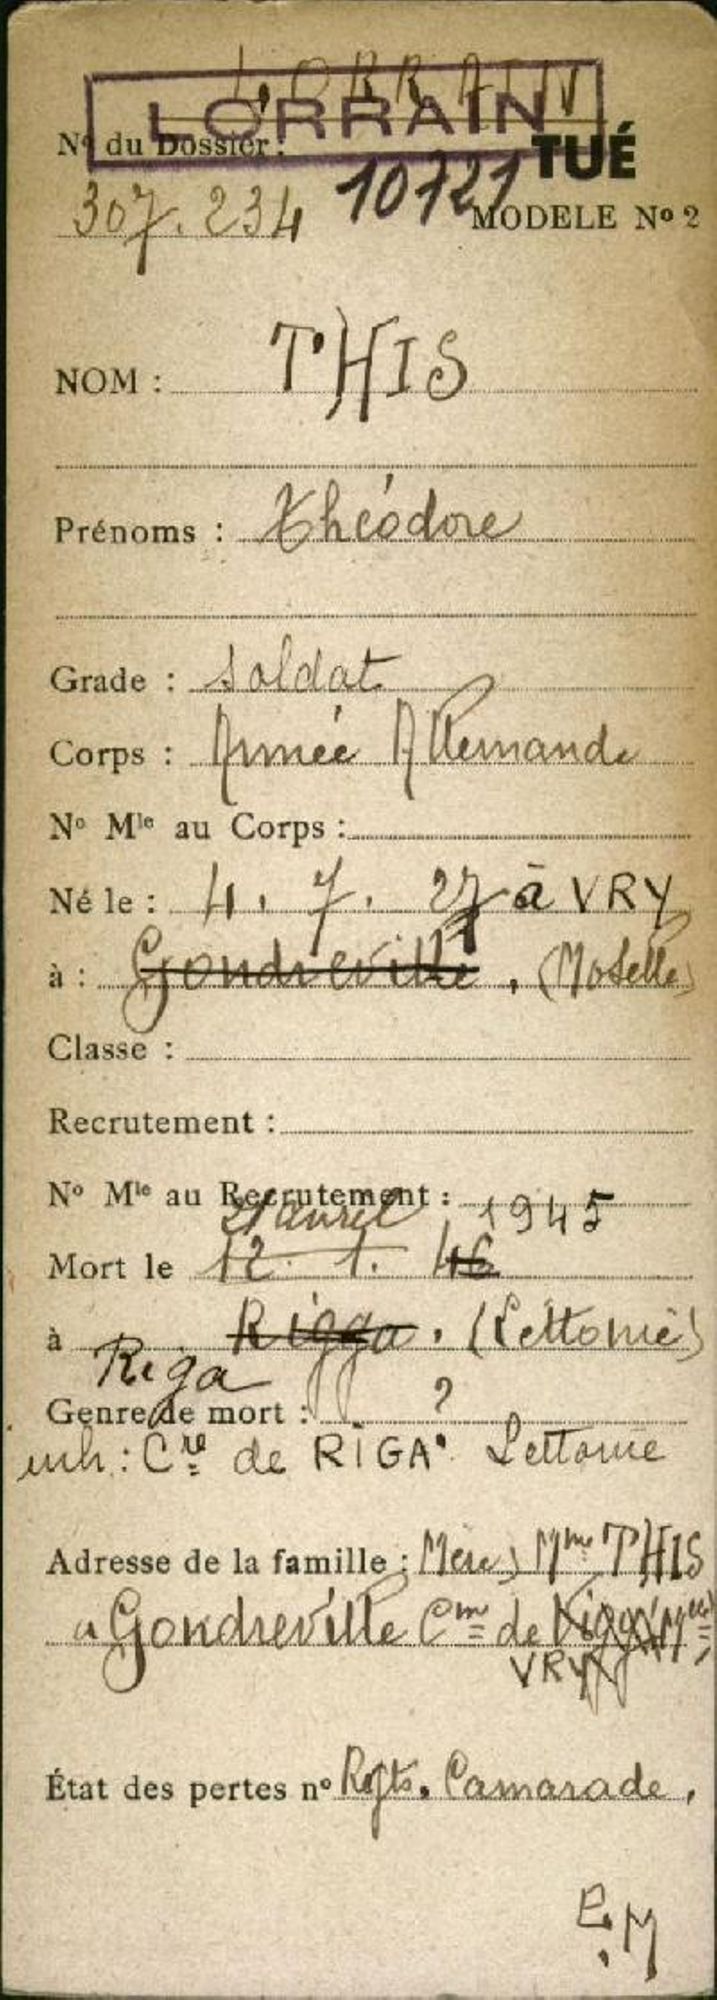 LORRAIN
LORRAIN
N° du Dossier :
TUÉ
307.234 10721
MODELE N° 2
NOM : THIS
Prénoms : Théodore
Grade : Soldat
Corps : Armée Allemande
N° Mle au Corps :
Né le : 4. 7. 27 à VRY
à : Gondreville, (Moselle)
Classe :
Recrutement :
N° Mle au Recrutement :
21 avril 1945
Mort le 12. 1. 46
à Rigga. (Lettonie)
Riga
Genre de mort : ?
inh : Cre de RIGA. Lettonie
Adresse de la famille : Mère) Mme THIS
a Gondreville Cm de Viggy (Mlle)
VRY
État des pertes n° Rgts. Camarade.
E.M